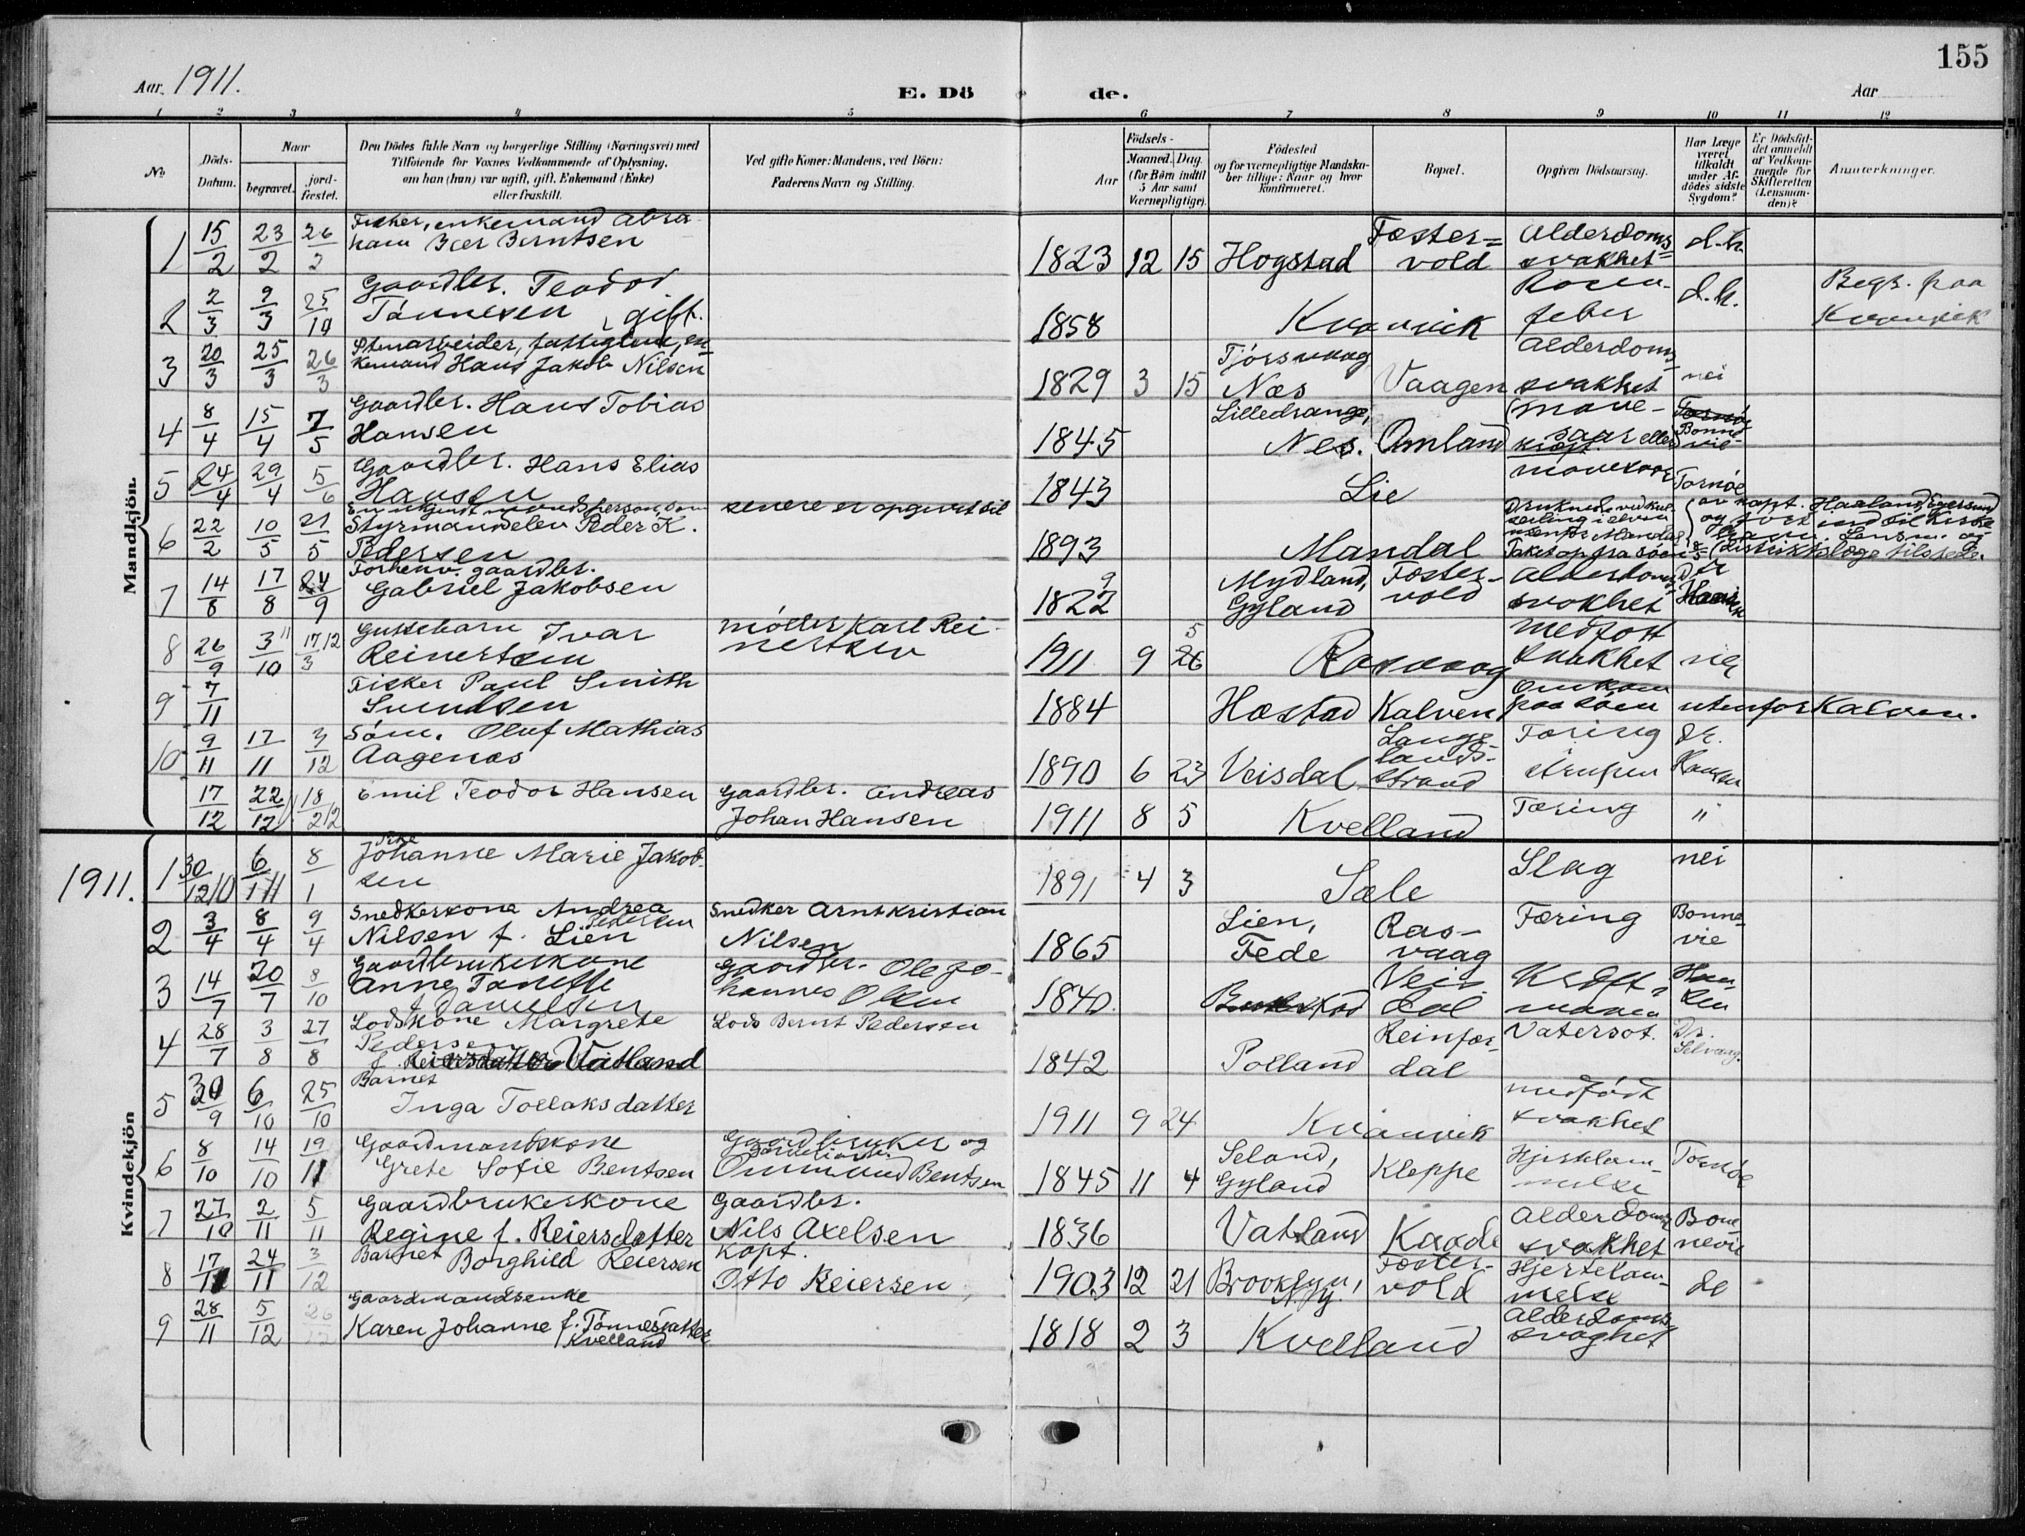 155
Aar 1911.
E. Dö de.
Aar
1 2 3 4 5 6 7 8 9 10 11 12
№
Döds-Datum.
Naar
begravet.
jord-fæstet.
Den Dödes fulde Navn og borgerlige Stilling (Næringsvei) med
Tilföiende for Voxnes Vedkommende af Oplysning,
om han (hun) var ugift, gift, Enkemand (Enke)
eller fraskilt.
Ved gifte Koner: Mandens, ved Börn:
Faderens Navn og Stilling.
Födsels-
Aar
Maaned. Dag.
(for Börn indtil
5 Aar samt
Værnepligtige).
Födested
og for værnepligtige Mandska-
ber tillige: Naar og hvor
konfirmeret.
Bopæl.
Opgiven Dödsaarsag.
Har Læge
været
tilkaldt
under Af-
dödes sidste
Sygdom?
Er Dödsfal-
det anmeldt
af Vedkom-
mende for
Skifteretten
(Lensman-
den)?
Anmerkninger.
Mandkjön.
1 15/2 23/2 26/2 Fisker, enkemand Abra-
ham Beer Berntsen 1823 12 15 Hogstad Foster=
vold Alderdoms
svakhet d.h.
2 2/3 9/3 25/10 Gaardbr. Teodor
Tønnesen, gift. 1858 Kvanvik feber d.h. Begr. paa
Kvanvik
3 20/3 25/3 26/3 Stenarbeider, fattiglem, en-
kemand Hans Jakob Nilsen 1829 3 15 Tjörsvaag
Næs Vaagen Alderdoms
svakhet nei
4 8/4 15/4 7/5 Gaardbr. Hans Tobias
Hansen 1845 Lilledrange,
Nes. Omland mave-
saar eller
kræft Bonne-
vie
5 24/4 29/4 5/6 Gaardbr. Hans Elias
Hansen 1843 Lie mavesaar Tornöe
6 22/2 10/5 21/5 En ukjendt mandsperson, som senere er opgivet til
Styrmandselev Peder K.
Pedersen 1893 Mandal Druknede ved kul-
seiling i elven
utenfor Mandal
Taket op fra söen 8/5 av kapt. Haaland, Egersund
og ført ind til Kirke
havn. Lensm. og
distriktslæge tilstede.
7 14/8 17/8 24/9 Forhenv. gaardbr.
Gabriel Jakobsen 1822 9 Mydland,
Gyland Foster-
vold Alderdoms
svakhet Dr
8 26/9 3/10 11 17/3 12 Guttebarn Ivar
Reinertsen møller Karl Rei-
nertsen 1911 9 26 5 Rasvaag Medfött
svakhet nei
9 7/11 Fisker Paul Smith
Svendsen 1884 Hæstad Kalven Omkom
paa söen utenfor Kalven.
10 9/11 17/11 3/12 Søm. Oluf Mathias
Aagenas 1890 6 23 Veisdal Lange-
lands-
strand Tæring
strupen Dr.
Hansen
17/12 22/12 18/2 12 Emil Teodor Hansen Gaardbr. Andreas
Johan Hansen 1911 8 5 Kvelland Tæring "
Kvindekjön
1911. 1 30/12 10 6/1 11 8/1 Frk
Johanne Marie Jakob-
sen 1891 4 3 Sæle Slag nei
2 3/4 8/4 9/4 Snedkerkone Andrea
Pedersen
Nilsen f. Lien Snedker Arnt Kristian
Nilsen 1865 Lien,
Fede Ras-
vaag Tæring Bonne-
vie
3 14/7 20/7 8/10 Gaardbrukerkone
Anne Tanette
f. Danielsen Gaardbr. Ole Jo-
hannes Olsen 1840 Veis
dal Kræft i
maven Han-
sen
4 28/7 3/8 27/8 Lodskone Margrete
Pedersen
f. Reiersdatter Vatland Lods Bernt Pedersen 1842 Polland Reinfor-
dal Vatersot. Dr.
Selvaag.
5 30/9 6/10 25/10 Barnet
Inga Tollaksdatter 1911 9 24 Kvanvik medfödt
svakhet
6 8/10 14/10 19/11 Gaardmandskone
Grete Sofie Bentsen Gaardbruker og
Ommund Bentsen 1845 11 4 Seland,
Gyland Kleppe Hjerteslam-
melse Tornöe
7 27/10 2/11 5/11 Gaardbrukerkone
Regine f. Reiersdatter Gaardbr.
Nils Axelsen 1836 Vatland Kaade Alderdoms
svakhet Bone
nevie
8 17/11 24/11 3/12 Barnet Borghild Reiersen Kapt.
Otto Reiersen 1903 12 21 Brooklyn,
N.y Foster-
vold Hjertelam-
melse do
9 28/11 5/12 26/12 Gaardmandsenke
Karen Johanne f. Tønnesdatter
Kvelland 1818 2 3 Kvelland Alderdoms
svaghet